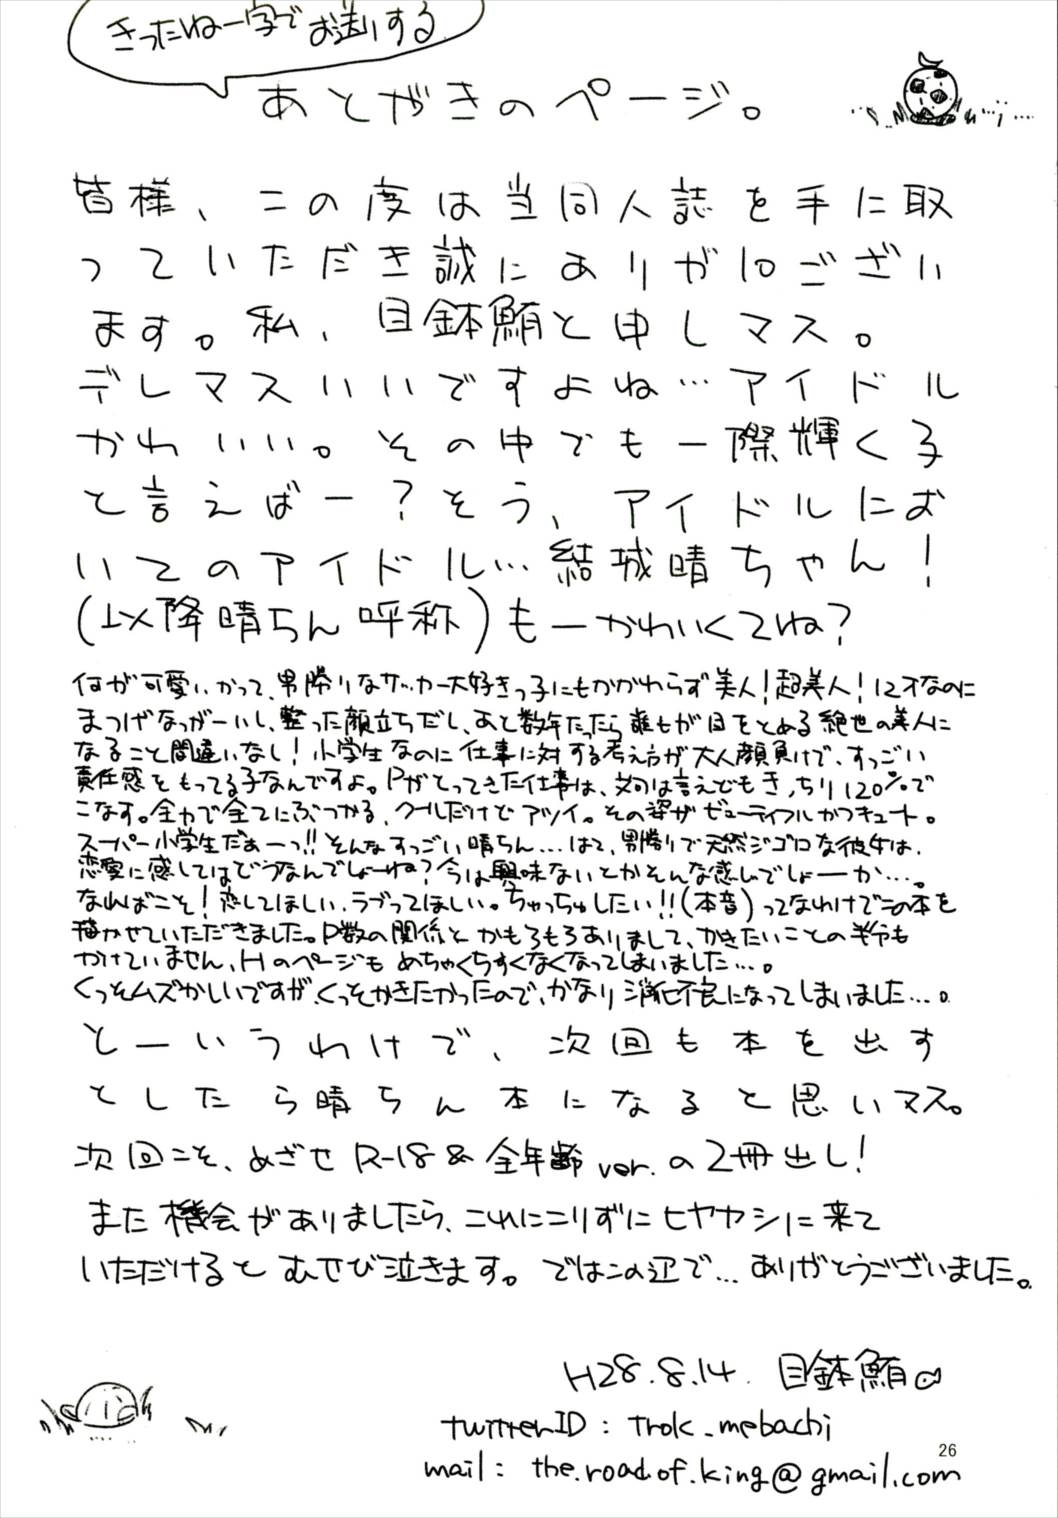 きったねー字でお送りする
あとがきのページ。
皆様、この度は当同人誌を手に取
っていただき誠にありが10ござい
ます。私、目鉢鮪と申しマス。
デレマスいいですよね…アイドル
かわいい。その中でも一際輝く子
と言えばー?そう、アイドルにお
いてのアイドル…結城晴ちゃん!
(以降晴ちん呼称)もーかわいくてね?
何が可愛いかって、男勝りなサッカー大好きっ子にもかかわらず美人!超美人!12才なのに
まつげなっがーいし、整った顔立ちだし、あと数年たったら誰もが目をとめる絶世の美人に
なること間違いなし!小学生なのに仕事に対する考え方が大人顔負けで、すっごい
責任感をもってる子なんですよ。Pがとってきた仕事は、文句は言えどもきっちり120%で
こなす。全力で全てにぶつかる、クールだけどアツイ。その姿がビューティフルかつキュート。
スーパー小学生だぁーっ!!そんなすっごい晴ちん…はて、男勝りで天然ジゴロな彼女は、
恋愛に感してはどうなんでしょーね?今は興味ないとかそんな感じでしょーか…。
なればこそ!恋してほしい、ラブってほしい。ちゅっちゅしたい!!(本音)ってなわけでこの本を
描かせていただきました。P数の関係とかもろもろありまして、かきたいことの半分も
かけていません、Hのページもめちゃくちゃすくなくなってしまいました…。
くっそムズかしいですが、くっそかきたかったので、かなり消化不良になってしまいました…。
とーいうわけで、次回も本を出す
としたら晴ちん本になると思いマス。
次回こそ、めざせR-18&全年齢ver.の2冊出し!
また機会がありましたら、これにこりずにヒヤカシに来て
いただけるとむせび泣きます。ではこの辺で…ありがとうございました。
H28.8.14. 目鉢鮪
twitterID:trok_mebachi
mail:the.road.of.king@gmail.com
26